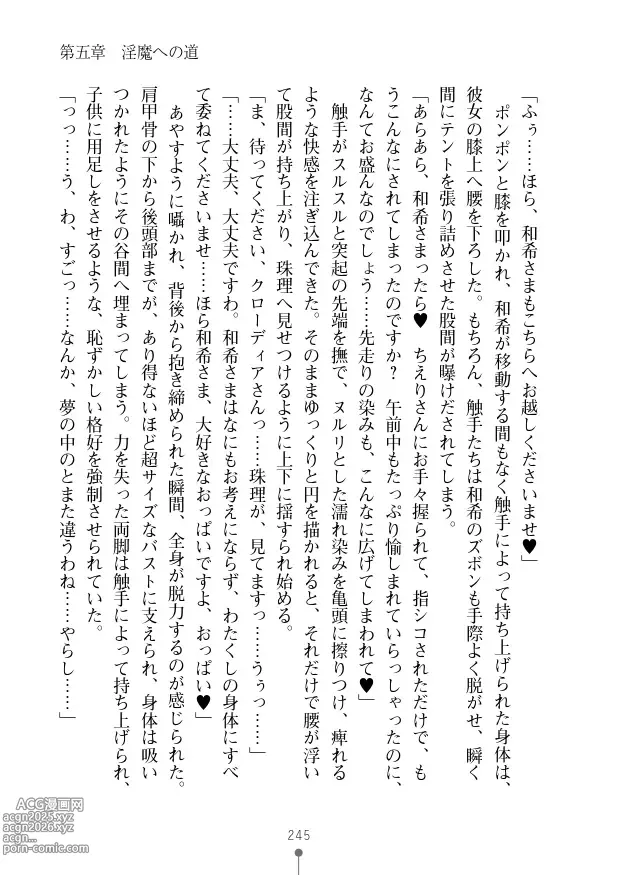 第五章　淫魔への道
「ふぅ……ほら、和希さまもこちらへお越しくださいませ♥」
　ポンポンと膝を叩かれ、和希が移動する間もなく触手によって持ち上げられた身体は、
彼女の膝上へ腰を下ろした。もちろん、触手たちは和希のズボンも手際よく脱がせ、瞬く
間にテントを張り詰めさせた股間が曝けだされてしまう。
「あらあら、和希さまったら♥　ちえりさんにお手々握られて、指シコされただけで、も
うこんなにされてしまったのですか？　午前中もたっぷり愉しまれていらっしゃったのに、
なんてお盛んなのでしょう……先走りの染みも、こんなに広げてしまわれて♥」
　触手がスルスルと突起の先端を撫で、ヌルリとした濡れ染みを亀頭に擦りつけ、痺れる
ような快感を注ぎ込んできた。そのままゆっくりと円を描かれると、それだけで腰が浮い
て股間が持ち上がり、珠理へ見せつけるように上下に揺すられ始める。
「ま、待ってください、クローディアさんっ……珠理が、見てますっ……うぅっ……」
「……大丈夫、大丈夫ですわ。和希さまはなにもお考えにならず、わたくしの身体にすべ
て委ねてくださいませ……ほら和希さま、大好きなおっぱいですよ、おっぱい♥」
　あやすように囁かれ、背後から抱き締められた瞬間、全身が脱力するのが感じられた。
肩甲骨の下から後頭部までが、あり得ないほど超サイズなバストに支えられ、身体は吸い
つかれたようにその谷間へ埋まってしまう。力を失った両脚は触手によって持ち上げられ、
子供に用足しをさせるような、恥ずかしい格好を強制させられていた。
「っっ……う、わ、すごっ……なんか、夢の中のとまた違うわね……やらし……」
245
ACG漫画网
acgn2025.xyz
acgn2026.xyz
acgn...
porn-comic.com